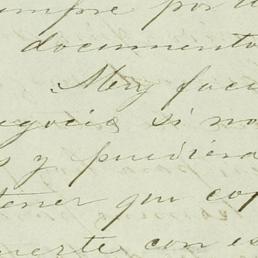 siempre por
documento
Muy faci
negocio, si no
s y pudiera
tener que cop
muerte con es